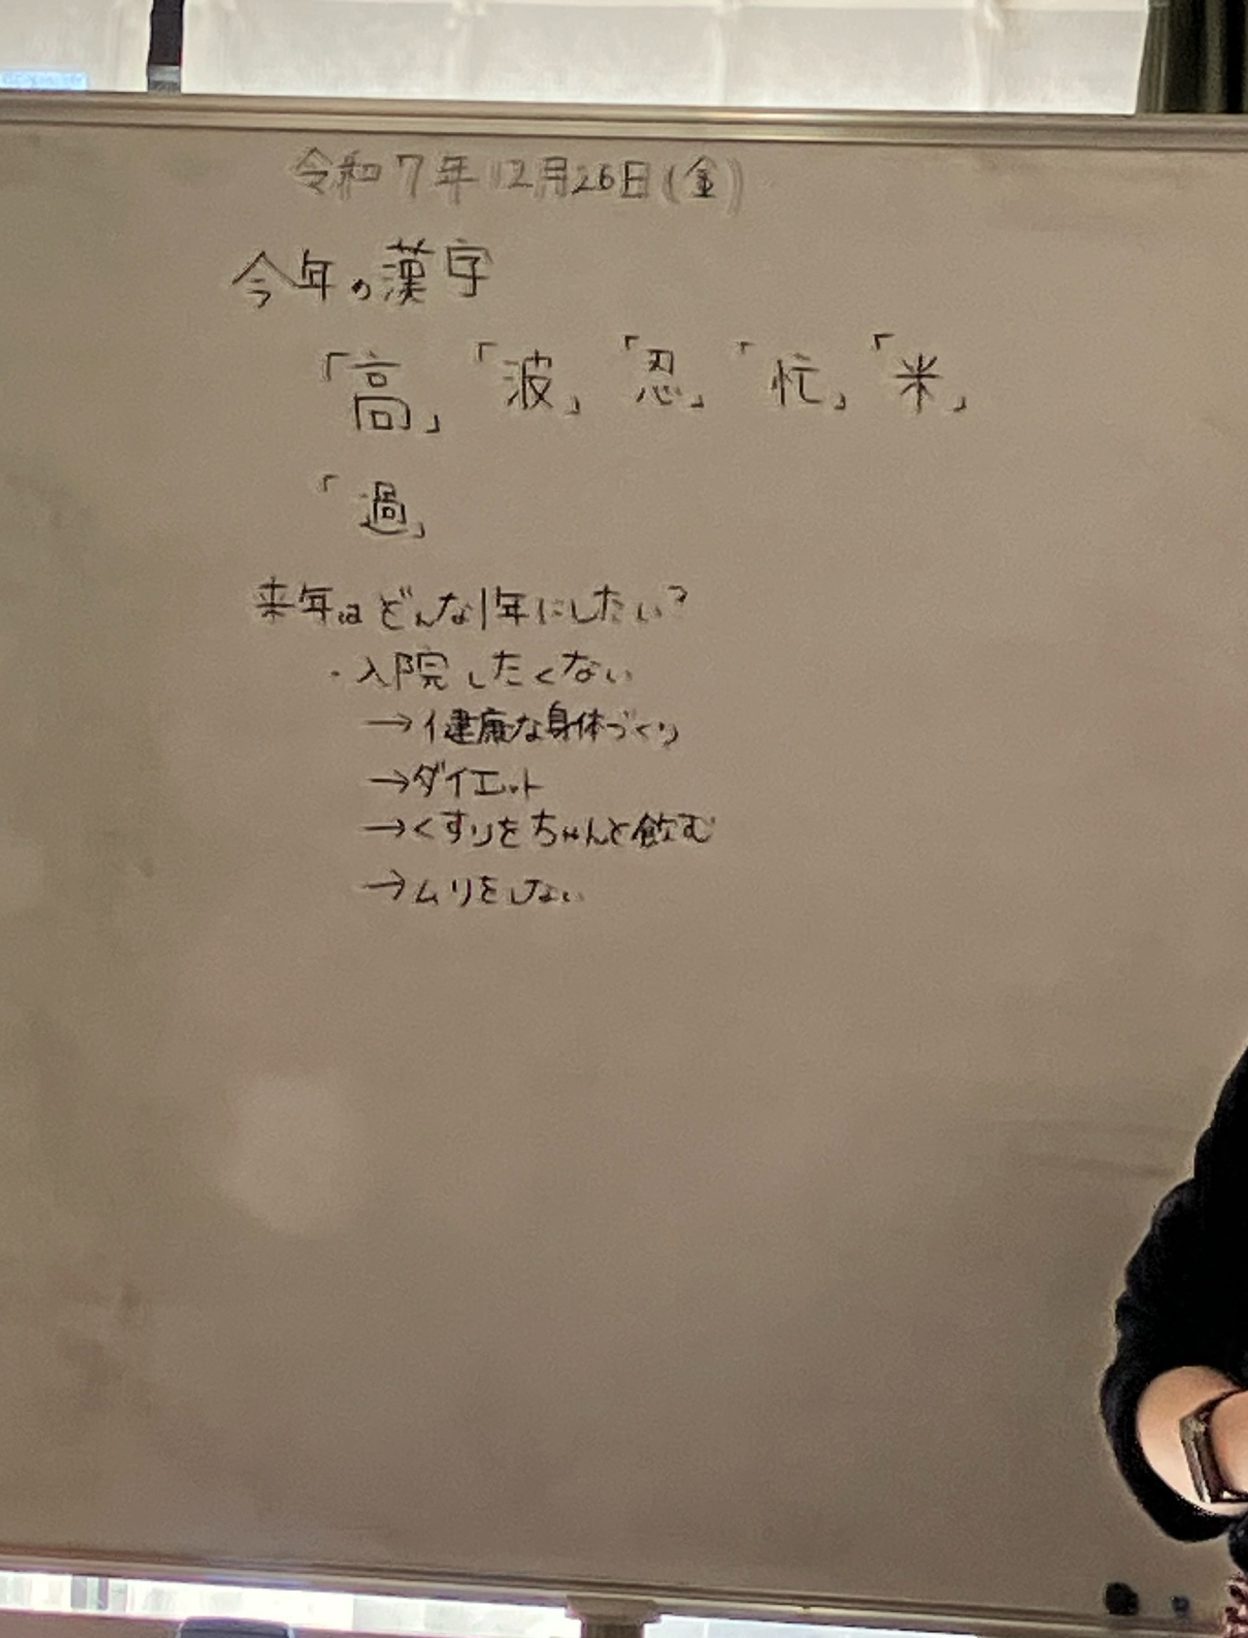 令和7年12月26日(金)
今年の漢字
「高」「波」「忍」「忙」「米」
「過」
来年はどんな1年にしたい?
・入院したくない
→健康な身体づくり
→ダイエット
→くすりをちゃんと飲む
→ムリをしない